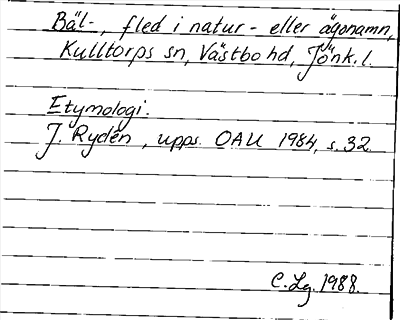 Bäl-, fled i natur- eller ägonamn,
Kulltorps sn, Västbo hd, Jönk.l.
Etymologi.
J. Rydén, upps. OAU 1984, s.32.
C.Lg. 1988.